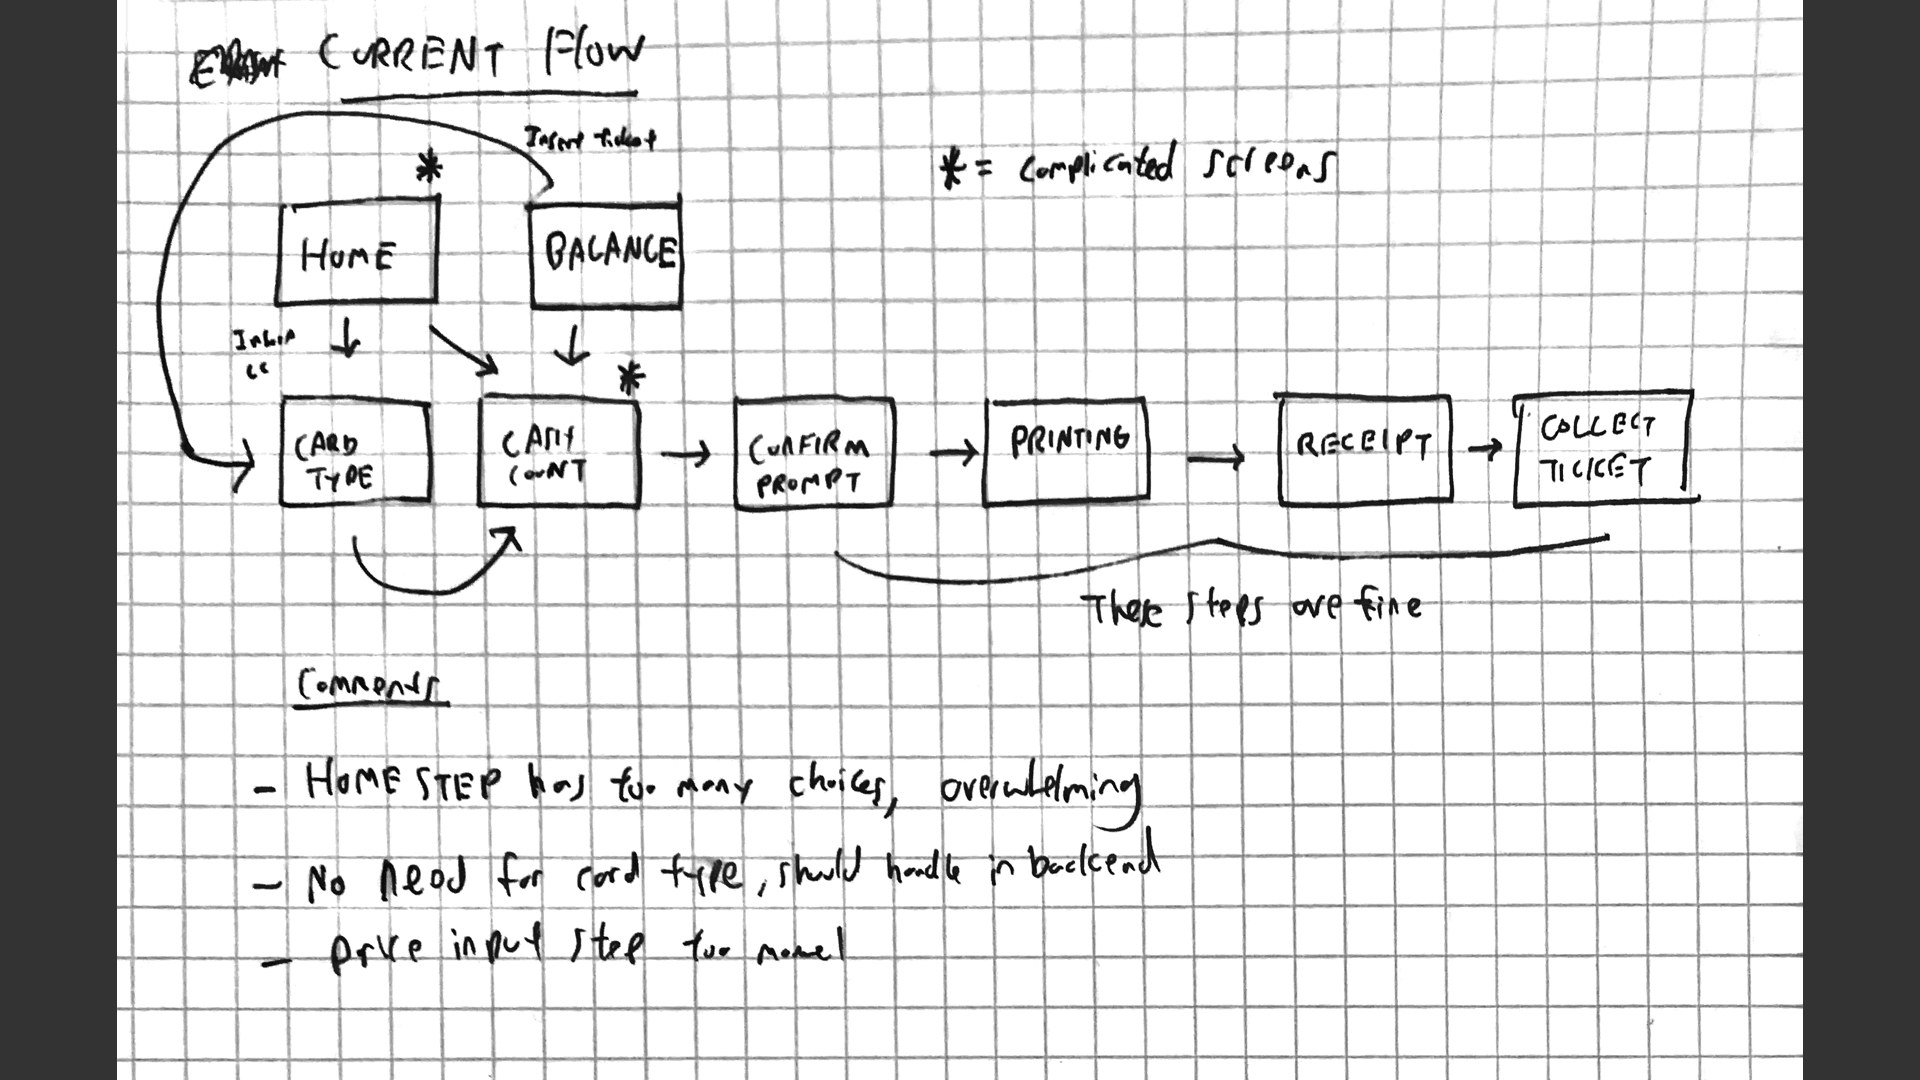 CURRENT Flow
Insert ticket
* = complicated screens
*
HOME
BALANCE
CC
*
CARD
TYPE
CASH
COUNT
CONFIRM
PROMPT
PRINTING
RECEIPT
COLLECT
TICKET
These steps are fine
Comments
- HOME STEP has too many choices, overwhelming
- No need for card type, should handle in backend
- price input step too